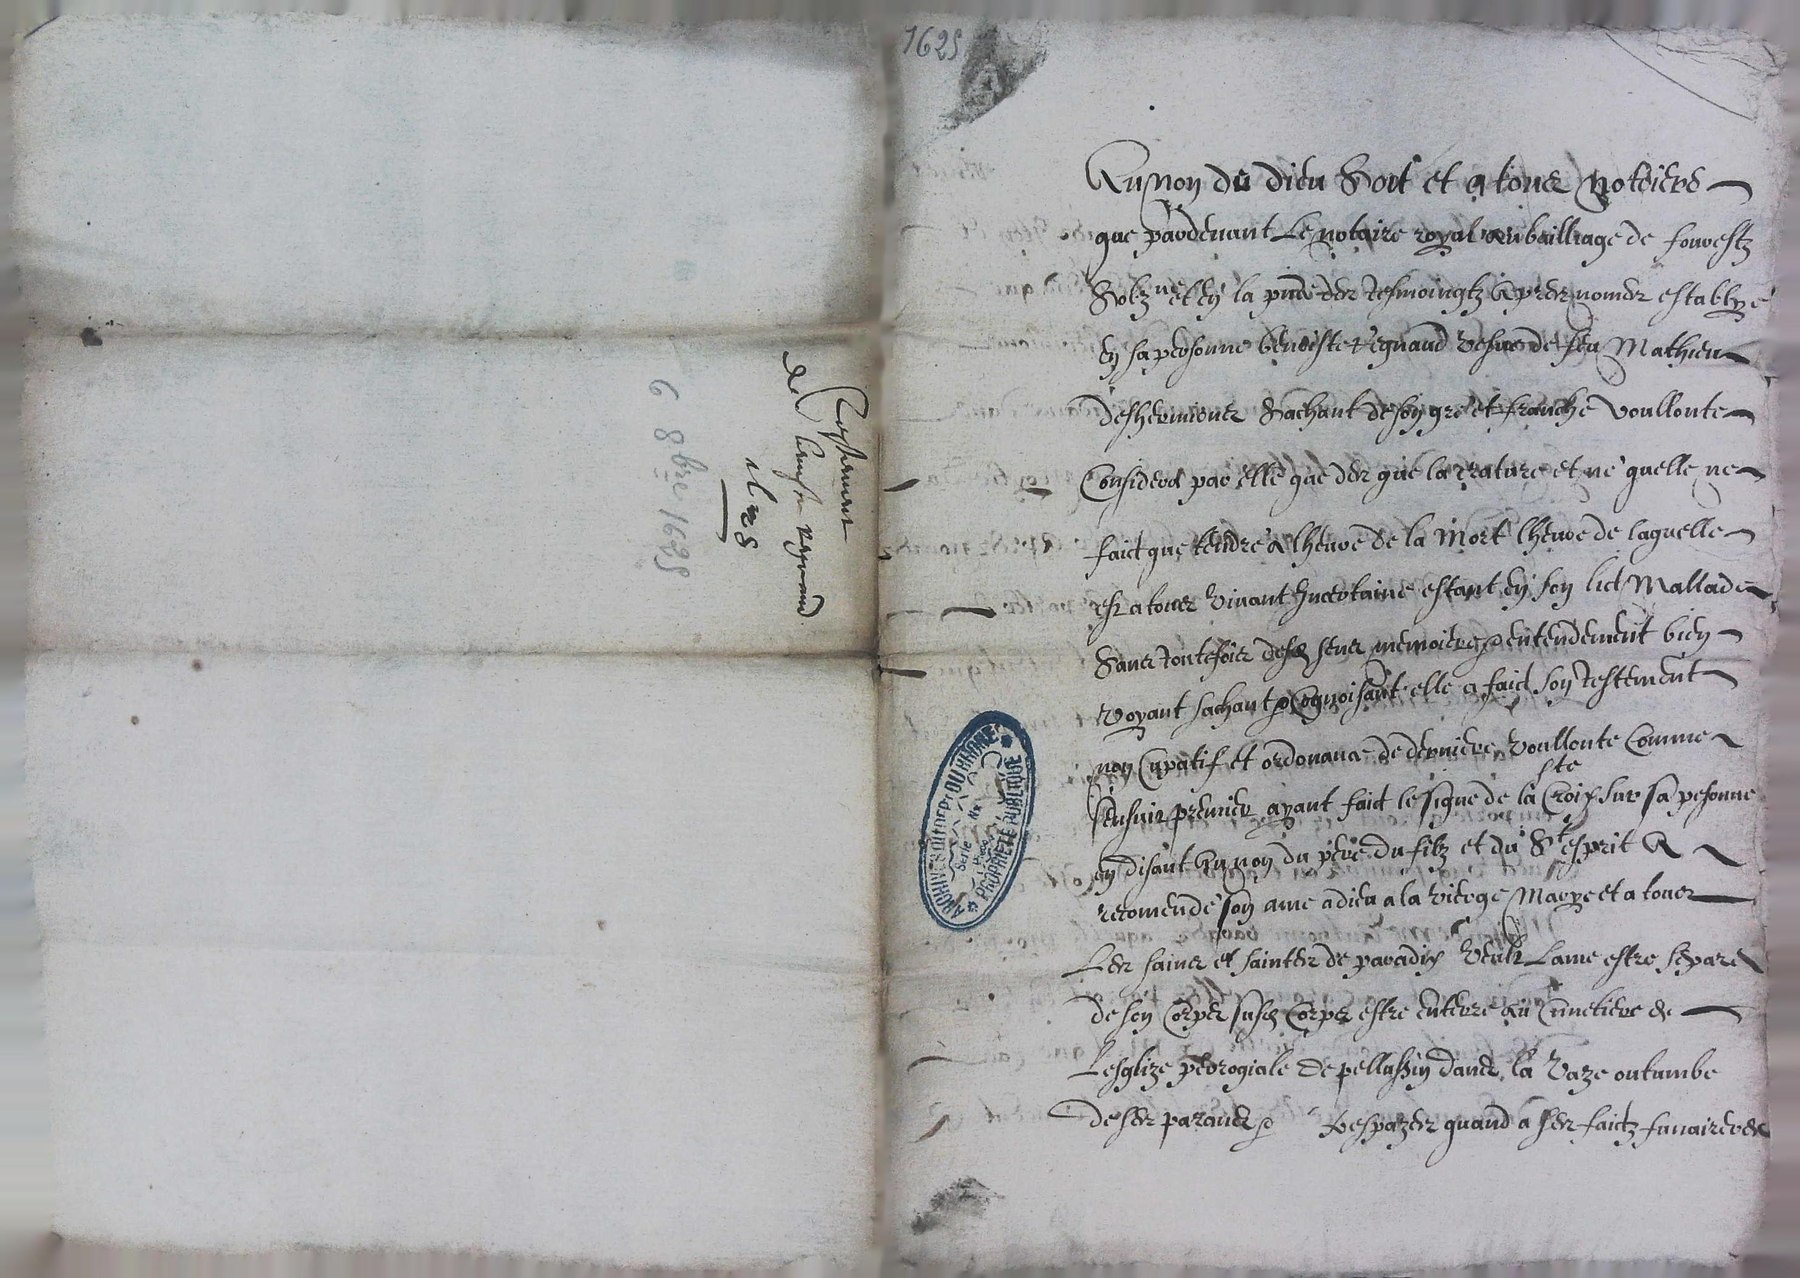 Testament
de benoiste reynaud
1625
6 8bre 1625
1625
Au nom de dieu Soit et a tous notoiere
que pardevant Le notaire royal au bailliage de fourestz
Soubz[ne] et en la pnce des tesmoingtz apres nomes establye
en sa personne benoiste reynaud vesve de feu Mathieu
deshermenes Sachant de son gre et franche voullonte
Considere par elle que des que la creature et ne quelle ne
faict que tendre a lheure de la Mort lheure de laquelle
est a tous vivant Incertaine estant en son lict Mallade
Sans toutesfois de ses sens memoiere et entendement bien
voyant sachant et Cognoisant elle a faict son testement
non Cupatif et ordonance de derniere voullonte Comme
sensuit premier ayant faict le signe de la ste Croix sur sa pesonne
en disant Au nom du pere du filz et du St esprit A
recomende son ame a dieu a la vierge Marye et a tous
Les sains et saintes de paradix veult Lame estre separe
de son Corps susd Corps estre enterre au Cimetiere de
Lesglize perrogiale de pellussin dans la Vaze ou tumbe
de ses parans et trespazes quand a ses faictz funaireres
ARCHIVES DU DEPT DU RHONE
Serie
PROPRIETE PUBLIQUE